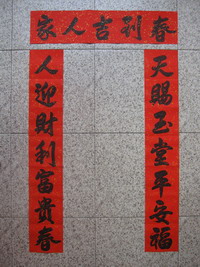 春到吉人家
天賜玉堂平安福
人迎財利富貴春